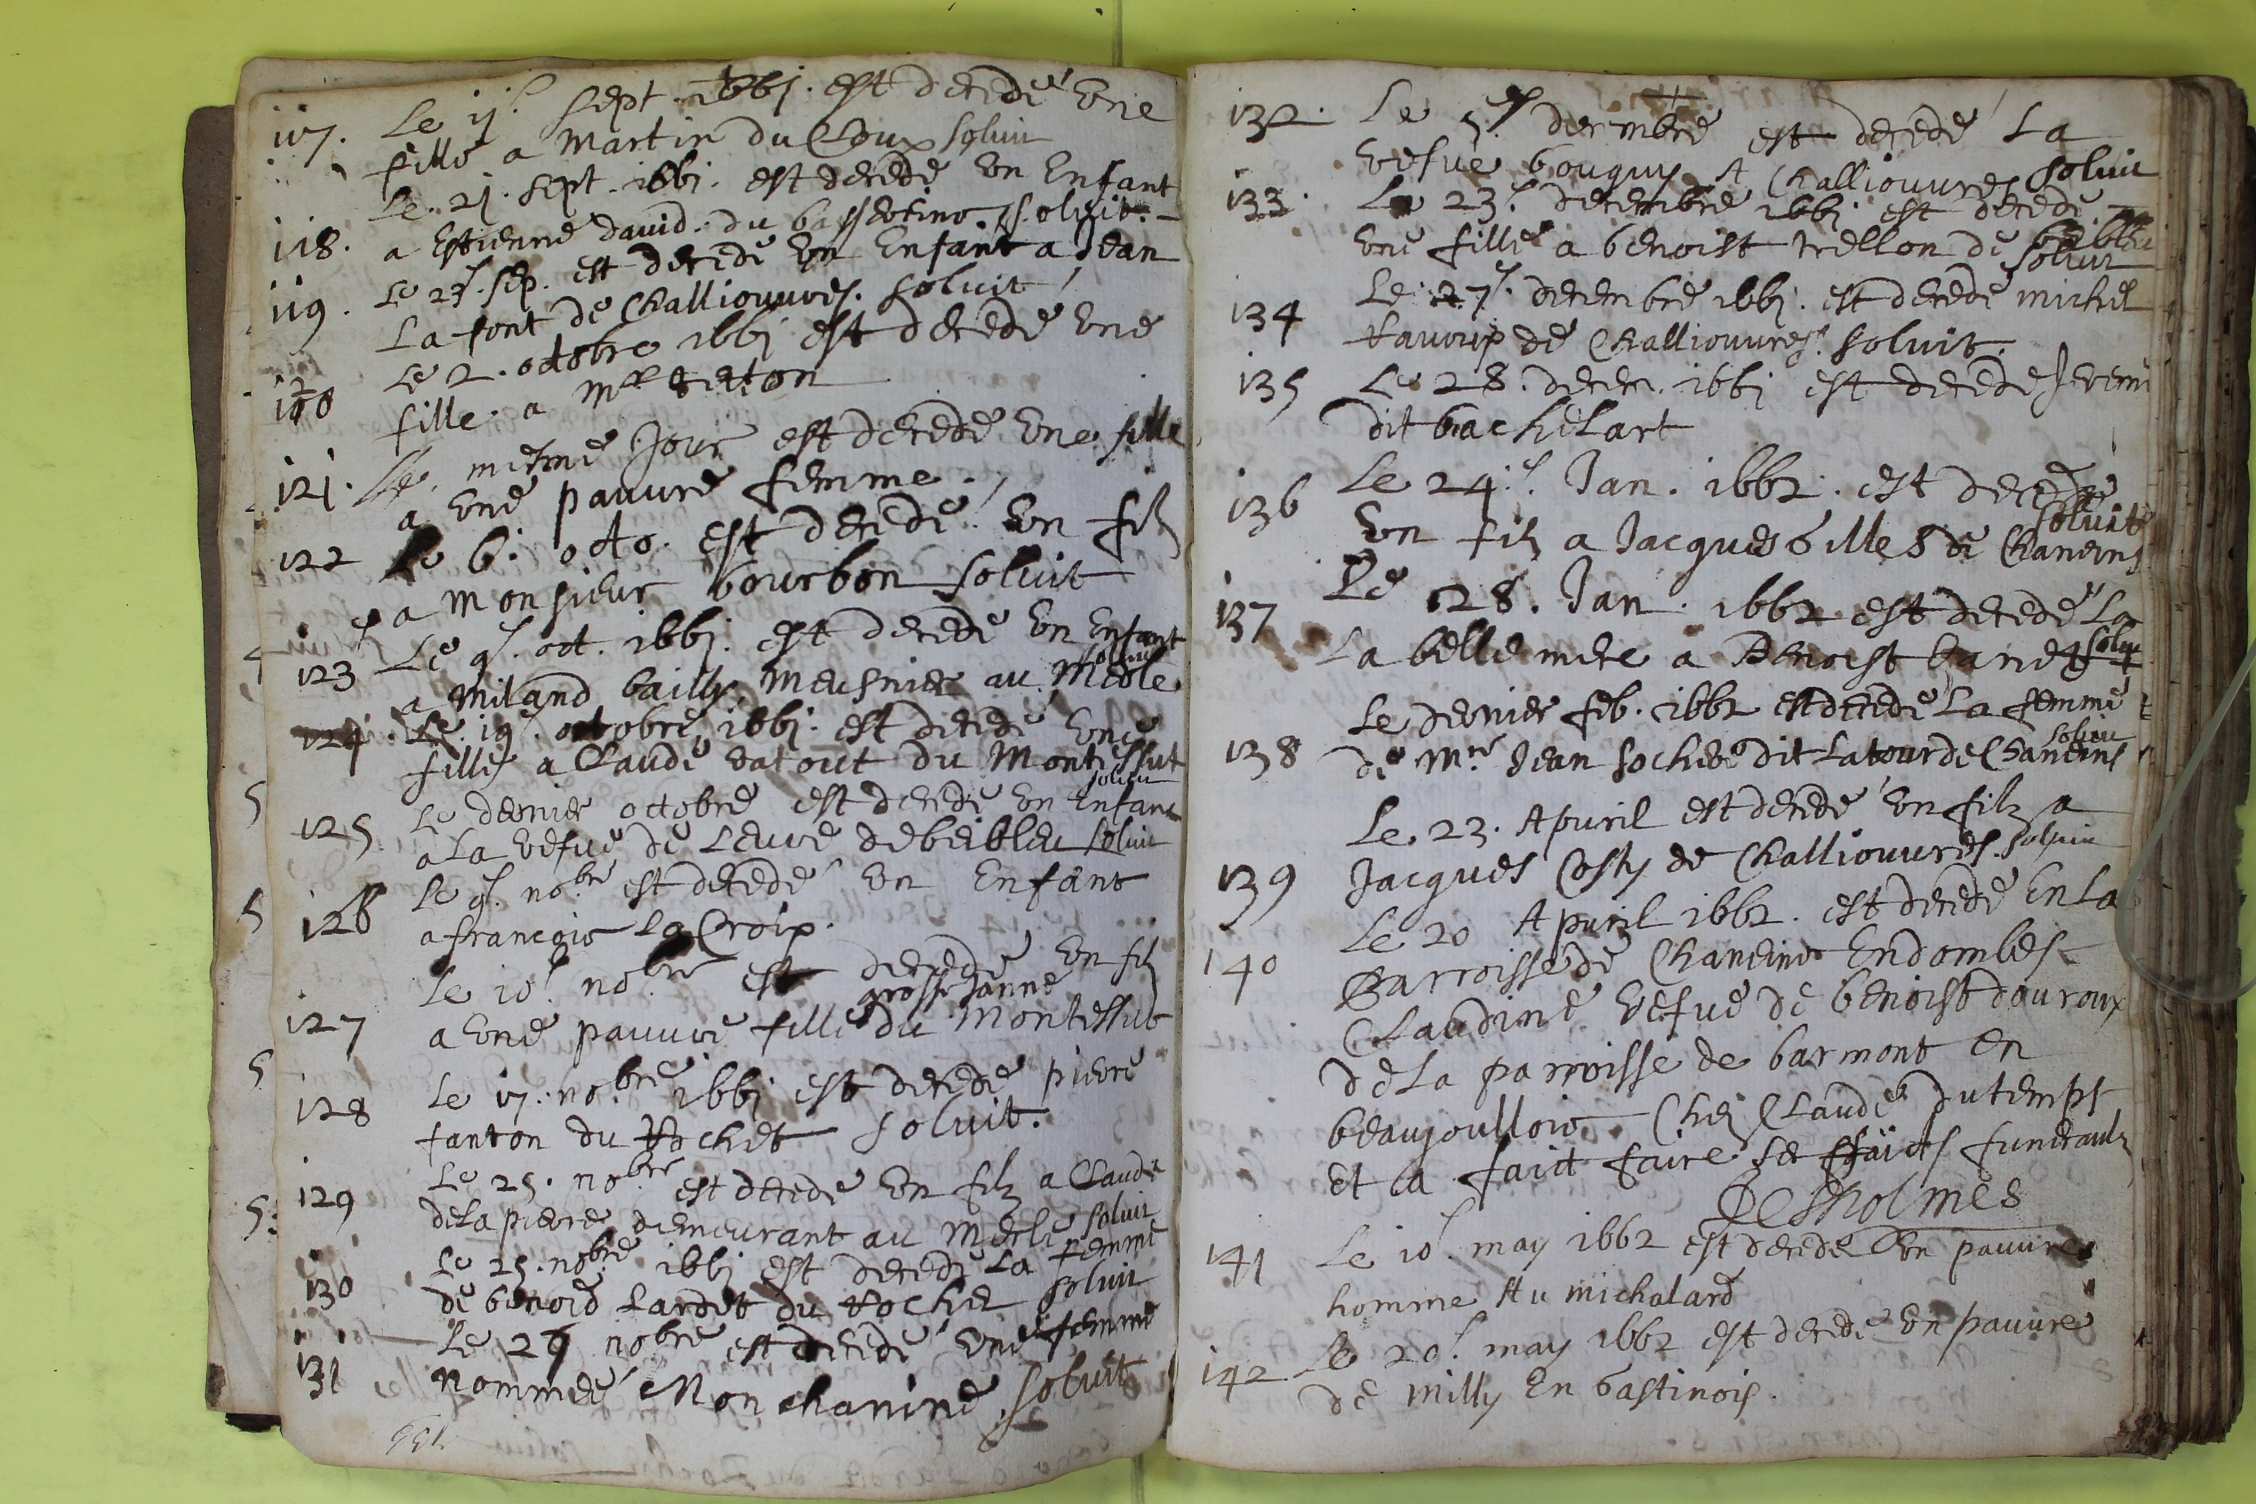 117. Le ij.e sept. 166j. est decedé une
fille a Martin du Cloux soluit
Le. 2j. sept. 166j. est decedé un Enfant
118. a Estienne david. du bassevoino. soluit.
Le 27. sep. est decedé un Enfant a Jean
119. La font de Challiouvres. soluit
Le 2. octobre 166j est decedé une
120 fille. a Mre berton
121. Le. mesme Jour est decedé une fille
a une pauvre femme.
122 Le 6. octo. est decedé un filz
a monsieur bourbon soluit
123 Le 9. oct. 166j. est decedé un Enfant
a Miland bailly Meusnier au Mesle soluit
124 Le. 19. octobre 166j. est decedé une
fille a Claude datout du Montessut
soluit
125 Le dernier octobre est decedé un Enfant
a La vefue de Leuvre de beibleu soluit
126 Le 9. nobre est decedé un Enfant
a francois La Croix.
Le 10. nobre est decedé un filz
grosse Janne
127 a une pauvre fille du Montessut
128 Le 17. nobre 166j est decedé pierre
fanton du Rochet soluit.
129 Le 25. nobre est decedé un filz a Claude
dela pierre demeurant au Mesle soluit
130 Le 25. nobre 166j est decedé La femme
de benoid Lardet du Rochet soluit
131 Le 26 nobre est decedé une femme
nommée Monchanine soluit
132. Le 5. decembre est decedé La
vefue bouguy A Challiouvres soluit
133. Le 23. decembre 166j est decedé
une fille a benoist trellon de beibleu
soluit
134 Le 27. decembre 166j. est decedé michel
Ravoux de Challiouvres. soluit.
135 Le 28. decem. 166j est decedé
dit bachelart
136 Le 24. Jan. 1662. est decedé
soluit
un filz a Jacques Gilles de Chaneins
137 Le 28. Jan. 1662 est decedé La
La belle mere a Benoist soluit
Le dernier feb. 1662 est decedé La femme
soluit
138 de Mre Jean sochet dit Latour de Chaneins
Le. 23. Apuril est decedé un filz a
139 Jacques Costy de Challiouvres. soluit
Le 20 Apuril 1662. est decedé En La
140 Parroisse de Chaneins En dombes
Claudine vefue de benoist douroux
de La parroisse de barmont en
beaujoullois Chez Claude dutemps
et a fait faire ses ffaicts funeraulz
Desholmes
141 Le 10. may 1662 est decedé un pauvre
homme Au michalard
142 Le 20. may 1662 est decedé un pauvre
de Milly En Gastinois.